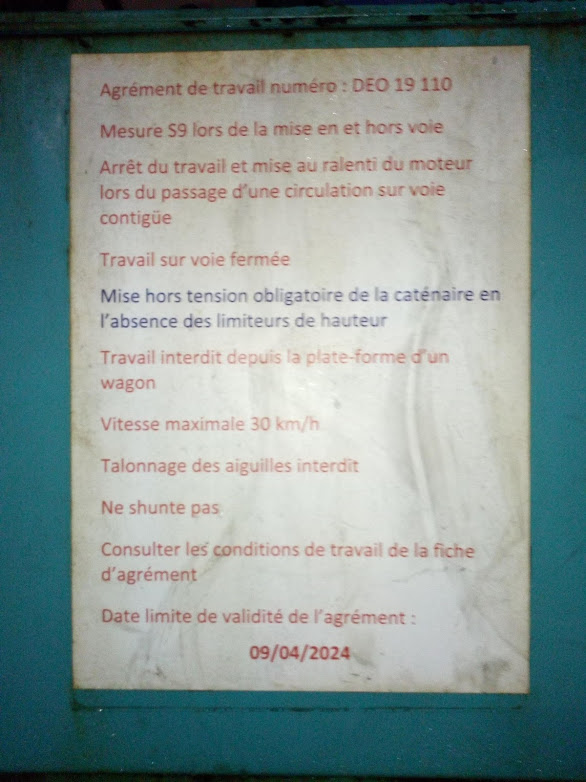 Agrément de travail numéro : DEO 19 110
Mesure S9 lors de la mise en et hors voie
Arrêt du travail et mise au ralenti du moteur
lors du passage d'une circulation sur voie
contigüe
Travail sur voie fermée
Mise hors tension obligatoire de la caténaire en
l'absence des limiteurs de hauteur
Travail interdit depuis la plate-forme d'un
wagon
Vitesse maximale 30 km/h
Talonnage des aiguilles interdit
Ne shunte pas
Consulter les conditions de travail de la fiche
d'agrément
Date limite de validité de l'agrément :
09/04/2024